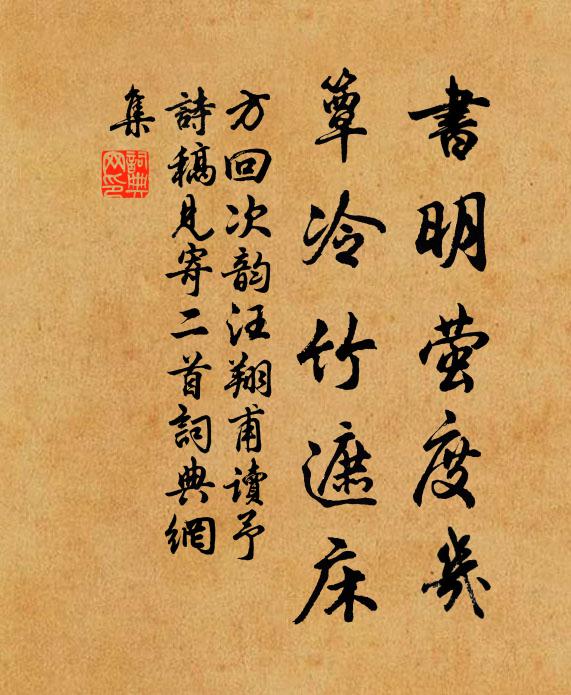 書明萤度幾
簟冷竹遮床
方回次韵汪翔甫讀予
詩稿見寄二首詞典網
集
詞典
网印